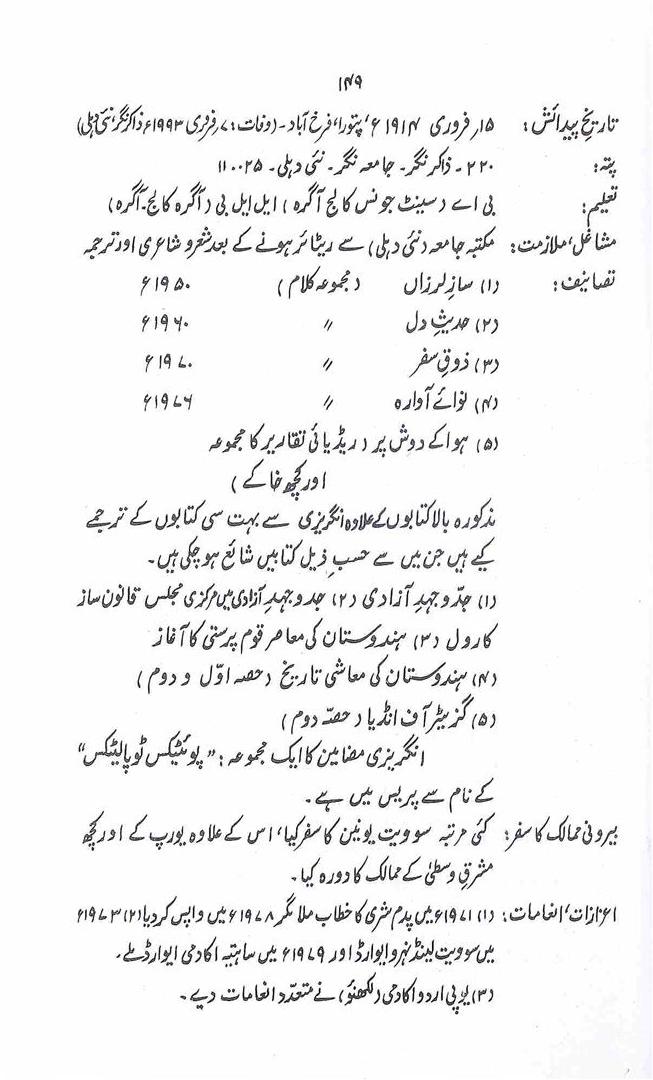 ۱۴۹
تاریخِ پیدائش: ۱۵؍ فروری ۱۹۱۴ء، پتورا، فرخ آباد۔ (وفات: ۷؍ فروری ۱۹۹۳ء ذاکرنگر، نئی دہلی)
پتہ: ۲۲۰۔ ذاکر نگر۔ جامعہ نگر۔ نئی دہلی۔ ۱۱۰۰۲۵
تعلیم: بی اے (سینٹ جونس کالج آگرہ) ایل ایل بی (آگرہ کالج۔ آگرہ)
مشاغل، ملازمت: مکتبہ جامعہ (نئی دہلی) سے ریٹائر ہونے کے بعد شعر و شاعری اور ترجمہ
تصانیف: (۱) سازِ لرزاں (مجموعہ کلام) ۱۹۵۰ء
(۲) حدیثِ دل // ۱۹۶۰ء
(۳) ذوقِ سفر // ۱۹۷۰ء
(۴) نوائے آوارہ // ۱۹۷۶ء
(۵) ہوا کے دوش پر (ریڈیائی تقاریر کا مجموعہ
اور کچھ خاکے)
مذکورہ بالا کتابوں کے علاوہ انگریزی سے بہت سی کتابوں کے ترجمے
کیے ہیں جن میں سے حسبِ ذیل کتابیں شائع ہو چکی ہیں۔
(۱) جدّوجہدِ آزادی (۲) جدوجہدِ آزادی میں مرکزی مجلس قانون ساز
کا رول (۳) ہندوستان کی معاصر قوم پرستی کا آغاز
(۴) ہندوستان کی معاشی تاریخ (حصہ اوّل و دوم)
(۵) گزیٹر آف انڈیا (حصّہ دوم)
انگریزی مضامین کا ایک مجموعہ: "پوئٹیکس ٹو پالیٹکس"
کے نام سے پریس میں ہے۔
بیرونی ممالک کا سفر: کئی مرتبہ سوویت یونین کا سفر کیا، اس کے علاوہ یورپ کے اور کچھ
مشرقِ وسطیٰ کے ممالک کا دورہ کیا۔
اعزازات، انعامات: (۱) ۱۹۷۱ء میں پدم شری کا خطاب ملا مگر ۱۹۷۸ء میں واپس کر دیا (۲) ۱۹۷۳ء
میں سوویت لینڈ نہرو ایوارڈ اور ۱۹۷۹ء میں ساہتیہ اکادمی ایوارڈ ملے۔
(۳) یوپی اردو اکادمی (لکھنؤ) نے متعدّد انعامات دیے۔